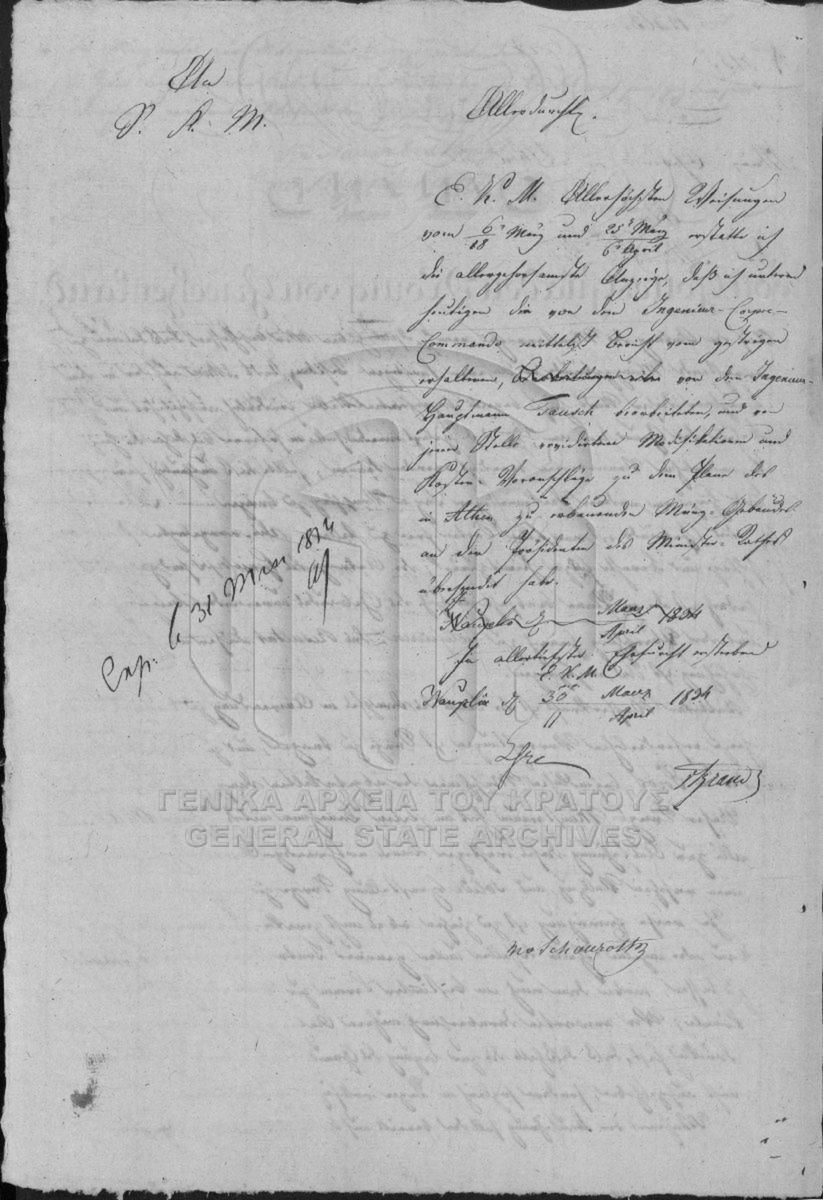 An
S. K. M.
Allerdurchl.
E. K. M. Allerhöchsten Weisungen
vom 6/18 März und 25t März/6t April erstatte ich
die allergehorsamste Anzeige, daß ich unterm
heutigen die von dem Ingenieur-Corps-
Commando mittelst Bericht vom gestrigen
erhaltenen, von dem Ingenieur-
Hauptmann Tausch bearbeiteten, und von
jener Stelle revidirten Modifikationen und
Kosten-Voranschläge zu dem Plane des
in Athen zu erbauenden Münz-Gebäudes
an den Präsidenten des Minister-Rathes
übersendet habe.
Nauplia März/April 1834
In allertiefster Ehrfurcht ersterbend
E. K. M.
Nauplia 30/11 Maerz/April 1834
Exp. 31 1834
ΓΕΝΙΚΑ ΑΡΧΕΙΑ ΤΟΥ ΚΡΑΤΟΥΣ
GENERAL STATE ARCHIVES